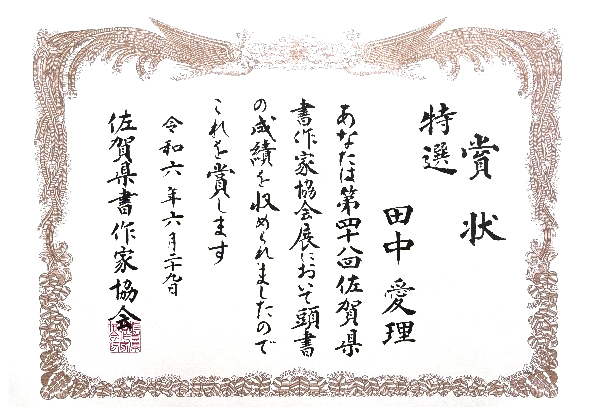 賞状
特選
田中愛理
あなたは第四十八回佐賀県
書作家協会展において頭書
の成績を収められましたので
これを賞します
令和六年六月二十九日
佐賀県書作家協会